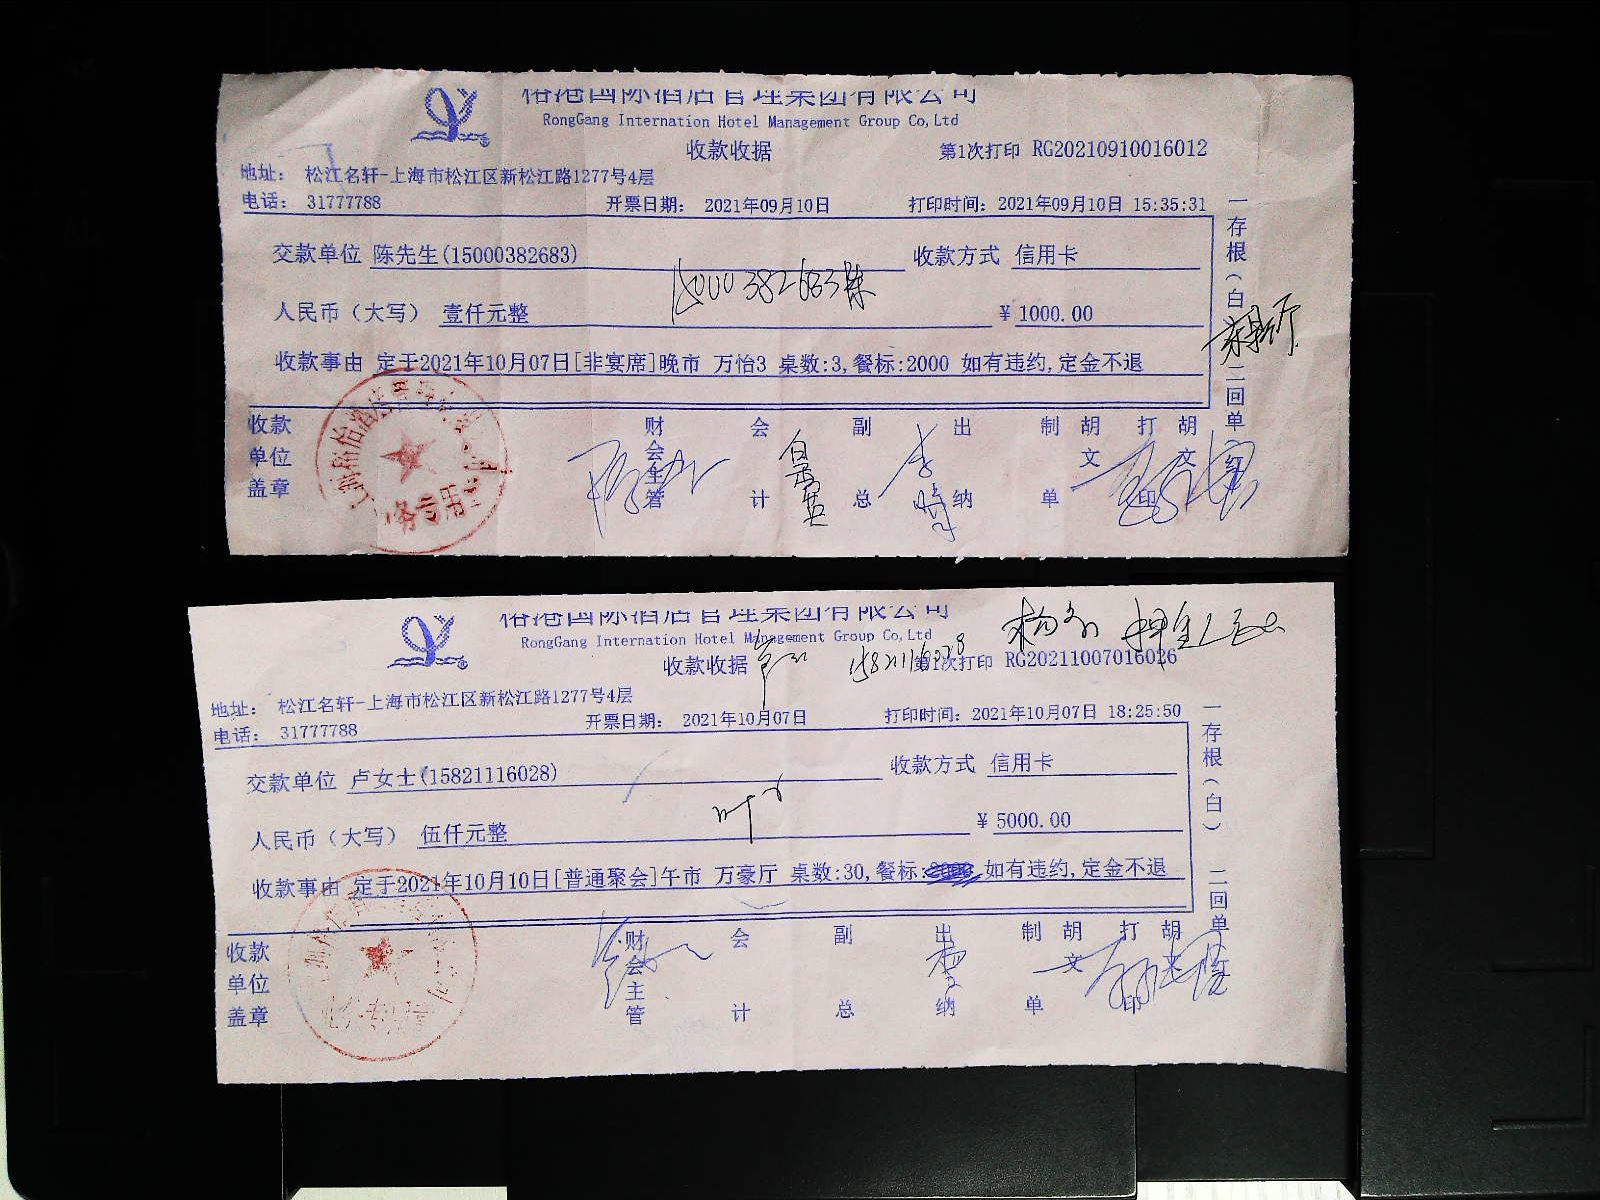 裕港国际酒店管理集团有限公司
RongGang Internation Hotel Management Group Co,Ltd
收款收据
第1次打印 RG20210910016012
地址: 松江名轩-上海市松江区新松江路1277号4层
电话: 31777788 开票日期: 2021年09月10日 打印时间: 2021年09月10日 15:35:31
交款单位 陈先生(15000382683) 收款方式 信用卡
15000382683陈
人民币（大写） 壹仟元整 ¥ 1000.00
收款事由 定于2021年10月07日[非宴席]晚市 万怡3 桌数:3,餐标:2000 如有违约,定金不退
一存根（白） 二回单
收款单位盖章 财会主管 会计 副总 出纳 制单 胡文 打印 胡文
裕港国际酒店管理集团有限公司
RongGang Internation Hotel Management Group Co,Ltd
收款收据
第1次打印 RG20211007016026
地址: 松江名轩-上海市松江区新松江路1277号4层
电话: 31777788 开票日期: 2021年10月07日 打印时间: 2021年10月07日 18:25:50
交款单位 卢女士(15821116028) 收款方式 信用卡
人民币（大写） 伍仟元整 ¥ 5000.00
收款事由 定于2021年10月10日[普通聚会]午市 万豪厅 桌数:30,餐标: 如有违约,定金不退
一存根（白） 二回单
收款单位盖章 财会主管 会计 副总 出纳 制单 胡文 打印 胡文